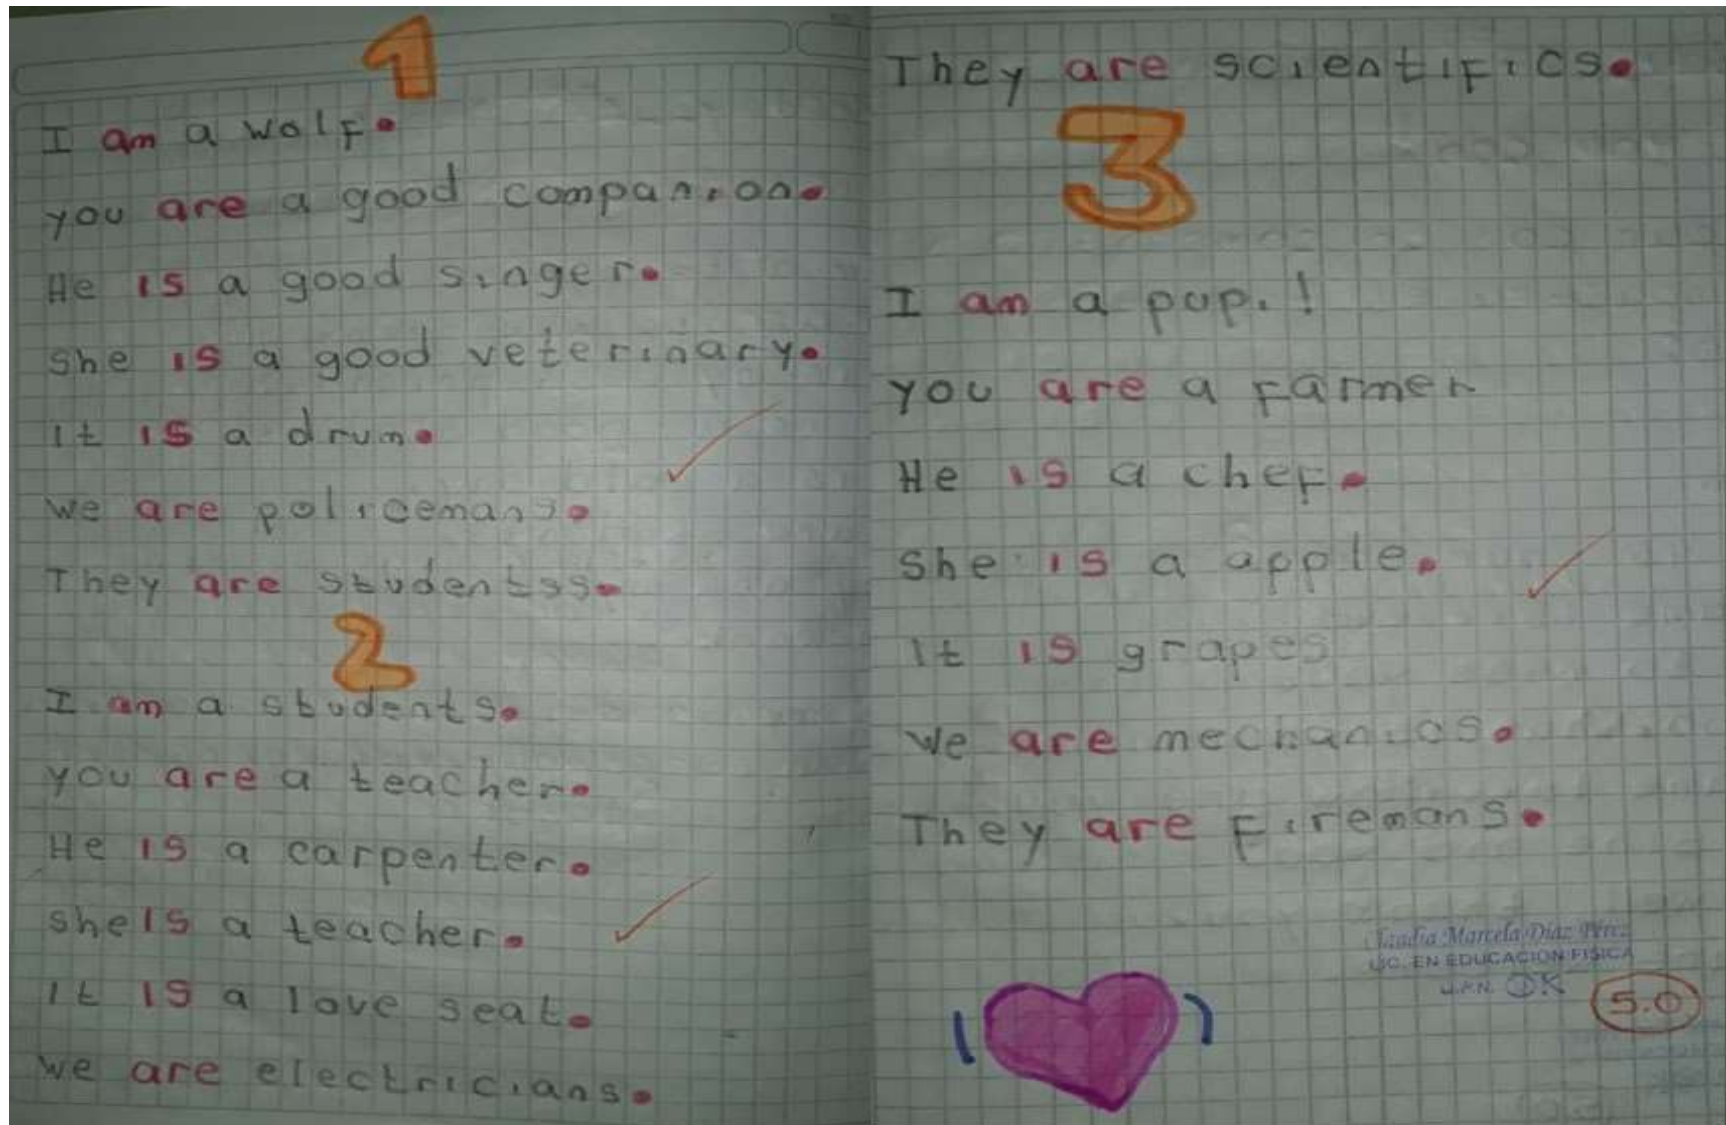 1
I am a wolf.
you are a good companion.
He is a good singer.
she is a good veterinary.
It is a drum.
we are policemans.
They are studentss.
2
I am a students.
you are a teacher.
He is a carpenter.
she is a teacher.
It is a love seat.
we are electricians.
They are scientifics.
3
I am a pup.!
you are a farmer
He is a chef.
she is a apple.
It is grapes
we are mechanics.
They are firemans.
Claudia Marcela Díaz Pérez
LIC. EN EDUCACION FISICA
U.P.N. OK
5.0